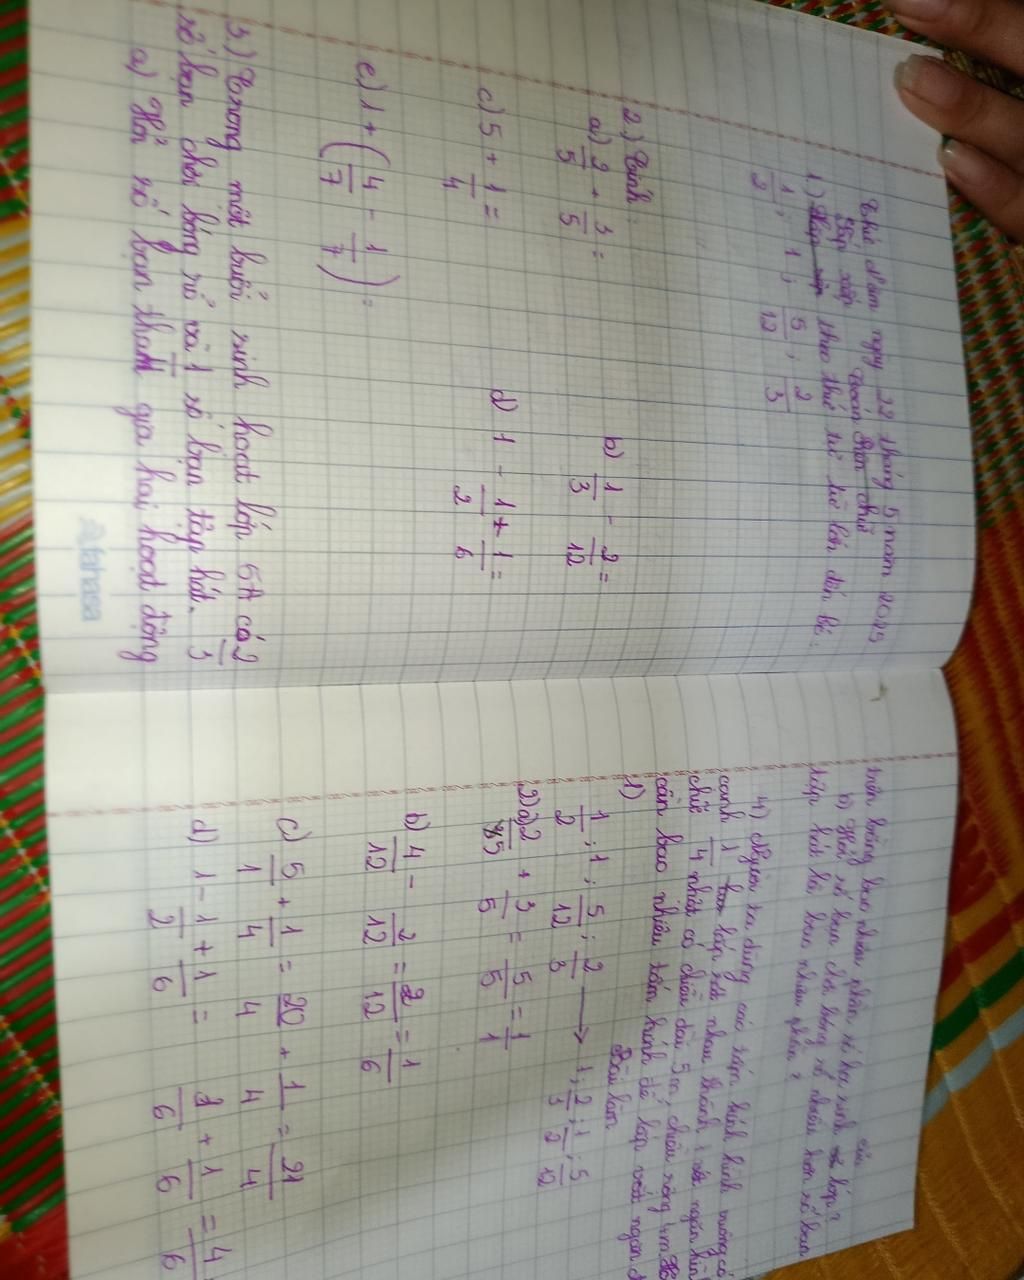 Thứ Năm ngày 22 tháng 5 năm 2025
Toán
1) Sắp xếp theo thứ tự từ lớn đến bé:
1/2; 1; 5/12; 2/3
2) Tính:
a) 2/5 + 3/5 = b) 1/3 - 2/12 =
c) 5 + 1/4 = d) 1 - 1/2 + 1/6 =
e) 1 + (4/7 - 1/7) =
3) Trong một buổi sinh hoạt lớp 5A có 2
số bạn chơi bóng rổ và 1/3 số bạn tập hát.
a) Hỏi số bạn tham gia hai hoạt động
Alahasa
trên bằng bao nhiêu phần số học sinh của lớp?
b) Hỏi số bạn chơi bóng rổ nhiều hơn số bạn
tập hát là bao nhiêu phần?
4) Người ta dùng các tấm kính hình vuông có
cạnh 1/4 lắp nhau thành 1 ngăn hình
chữ nhật có chiều dài 5m, chiều rộng 4m. Hỏi
cần bao nhiêu tấm kính để lắp vách ngăn
Bài làm
1)
1/2; 1; 5/12; 2/3 → 1; 2/3; 1/2; 5/12
2) a) 2/5 + 3/5 = 5/5 = 1/1
b) 4/12 - 2/12 = 2/12 = 1/6
c) 5/1 + 1/4 = 20/4 + 1/4 = 21/4
d) 1 - 1/2 + 1/6 = 3/6 + 1/6 = 4/6